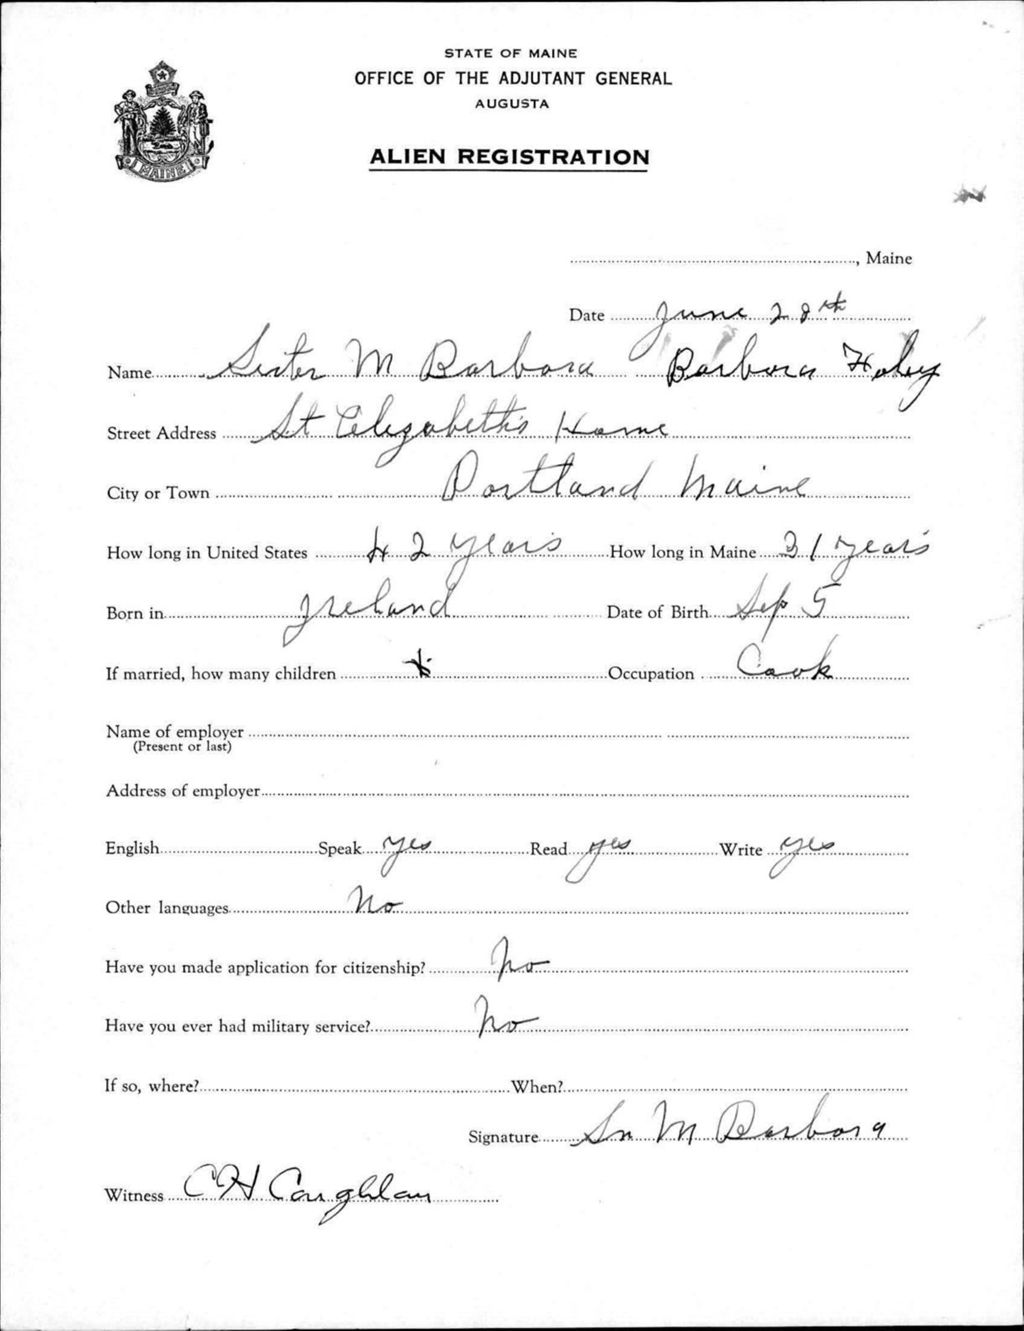 STATE OF MAINE
OFFICE OF THE ADJUTANT GENERAL
AUGUSTA
ALIEN REGISTRATION
MAINE
, Maine
Date June 28th
Name Sister M Barbara Barbara
Street Address St Elizabeth's Home
City or Town Portland Maine
How long in United States 42 years How long in Maine 31 years
Born in Ireland Date of Birth Sep 5
If married, how many children Occupation Cook
Name of employer
(Present or last)
Address of employer
English Speak yes Read yes Write yes
Other languages No
Have you made application for citizenship? No
Have you ever had military service? No
If so, where? When?
Signature Sr M Barbara
Witness C H Coughlan